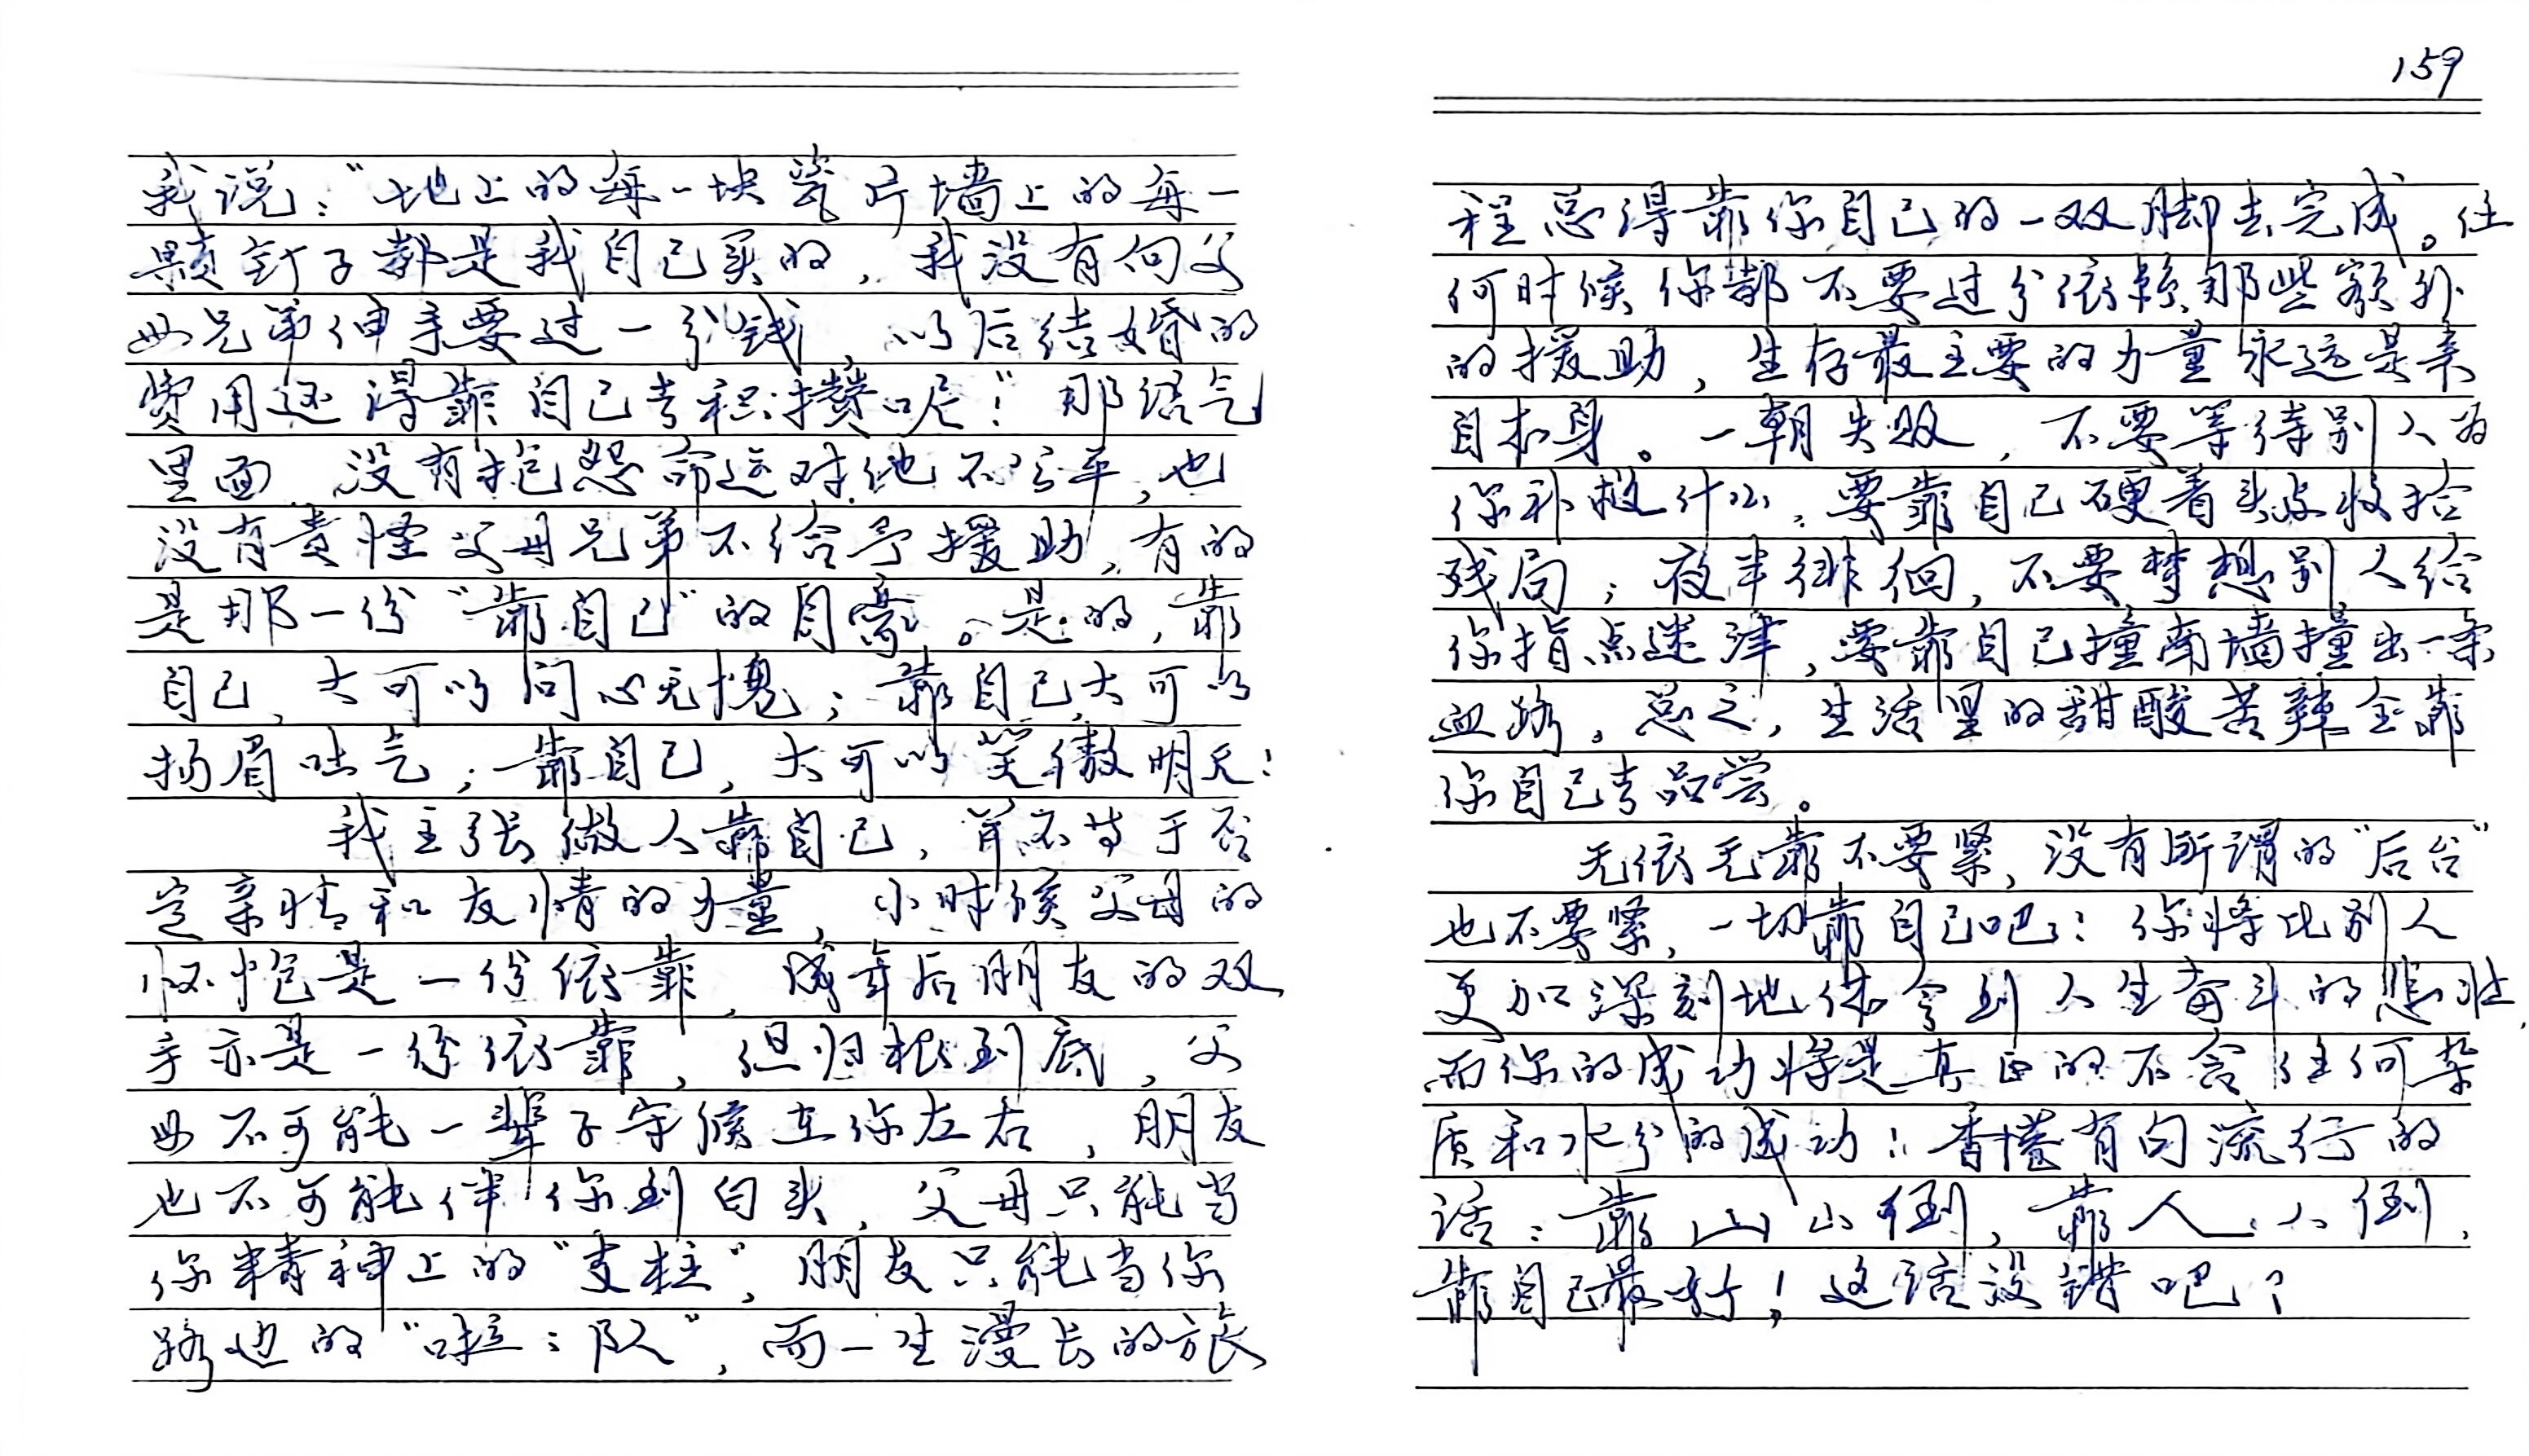 我说：“地上的每一块瓷片墙上的每一
颗钉子都是我自己买的，我没有向父
母兄弟伸手要过一分钱，以后结婚的
费用还得靠自己去积攒呢！”那语气
里面，没有抱怨命运对他不公平，也
没有责怪父母兄弟不给予援助，有的
是那一份“靠自己”的自豪。是的，靠
自己，大可以问心无愧；靠自己，大可以
扬眉吐气；靠自己，大可以笑傲明天！
我主张做人靠自己，并不等于否
定亲情和友情的力量，小时候父母的
怀抱是一份依靠，成年后朋友的双
手亦是一份依靠，但归根到底，父
母不可能一辈子守候在你左右，朋友
也不可能伴你到白头，父母只能当
你精神上的“支柱”，朋友只能当你
路边的“啦：队”，而一生漫长的旅
159
程总得靠你自己的一双脚去完成。任
何时候你都不要过分依赖那些额外
的援助，生存最主要的力量永远是来
自本身。一朝失败，不要等待别人为
你补救什么，要靠自己硬着头皮收拾
残局；夜半徘徊，不要梦想别人给
你指点迷津，要靠自己撞南墙撞出一条
血路，总之，生活里的甜酸苦辣全靠
你自己去品尝。
无依无靠不要紧，没有所谓的“后台”
也不要紧，一切靠自己吧！你将比别人
更加深刻地体会到人生奋斗的悲壮，
而你的成功将是真正的不含任何杂
质和水分的成功！香港有句流行的
话：靠山山倒，靠人人倒，
靠自己最好！这话没错吧？